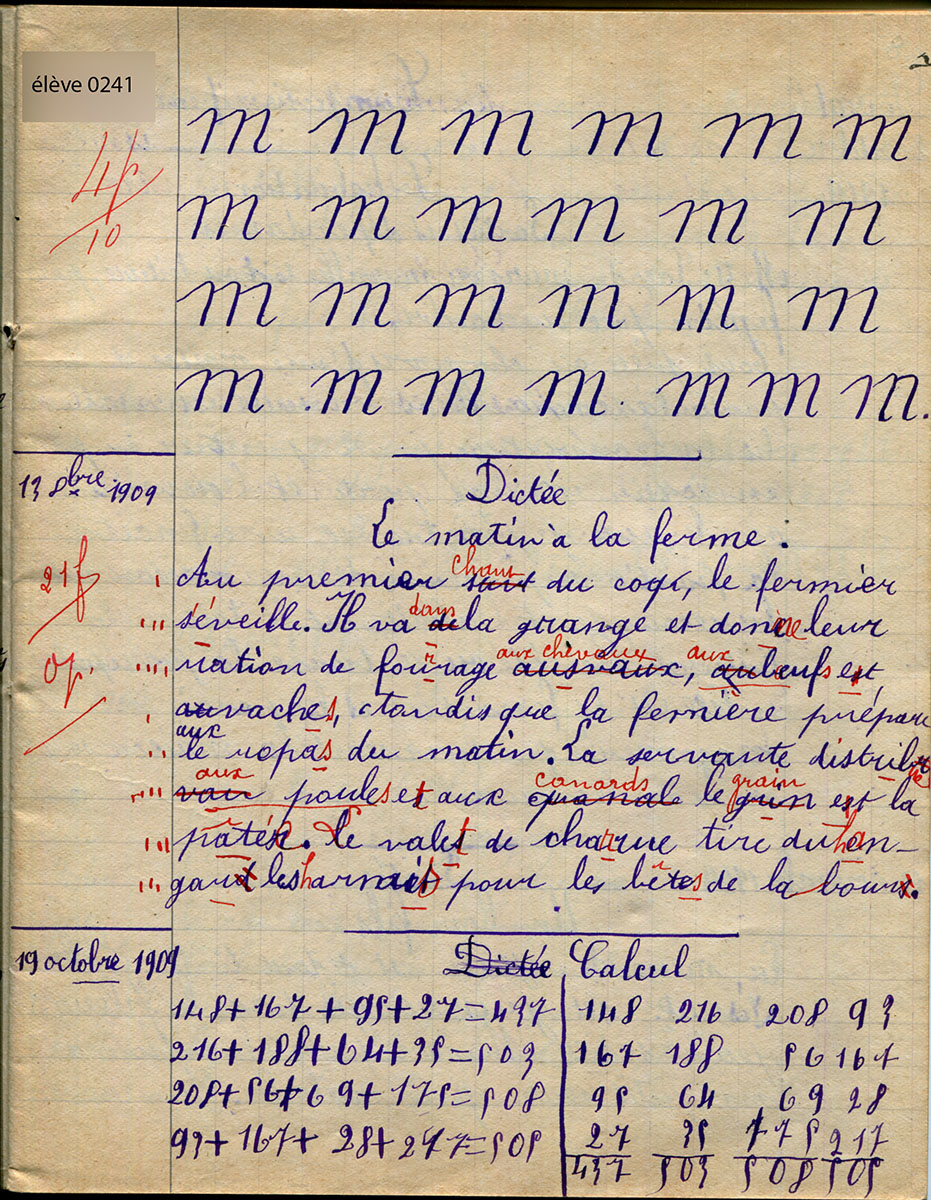 élève 0241
m m m m m m
4 p
10
m m m m m m
m m m m m m
m . m m m . m m m .
13 8bre 1909
Dictée
Le matin à la ferme .
21 f
0 p.
chant
Au premier du coq, le fermier
séveille. Il va dans la grange et donne leur
ration de fourage aux chevaux ausvaux, aux aubeufs et
au vaches, tandis que la fermière prépare
aux
le repas du matin. La servante distribue
aux canards grain
poules et aux quanal le grin et la
pâtée. Le valet de charrue tire du han-
gard les harnais pour les bêtes de la bour.
19 octobre 1909
Dictée Calcul
148 + 167 + 95 + 27 = 437 148 216 208 93
216 + 188 + 64 + 35 = 503 167 188 56 167
208 + 56 + 69 + 175 = 508 95 64 69 28
93 + 167 + 28 + 217 = 505 27 35 175 217
437 503 508 505